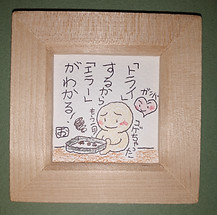 「トライ」
するから
「エラー」
がわかる.
ガンバ
コゲちゃった
もう一回